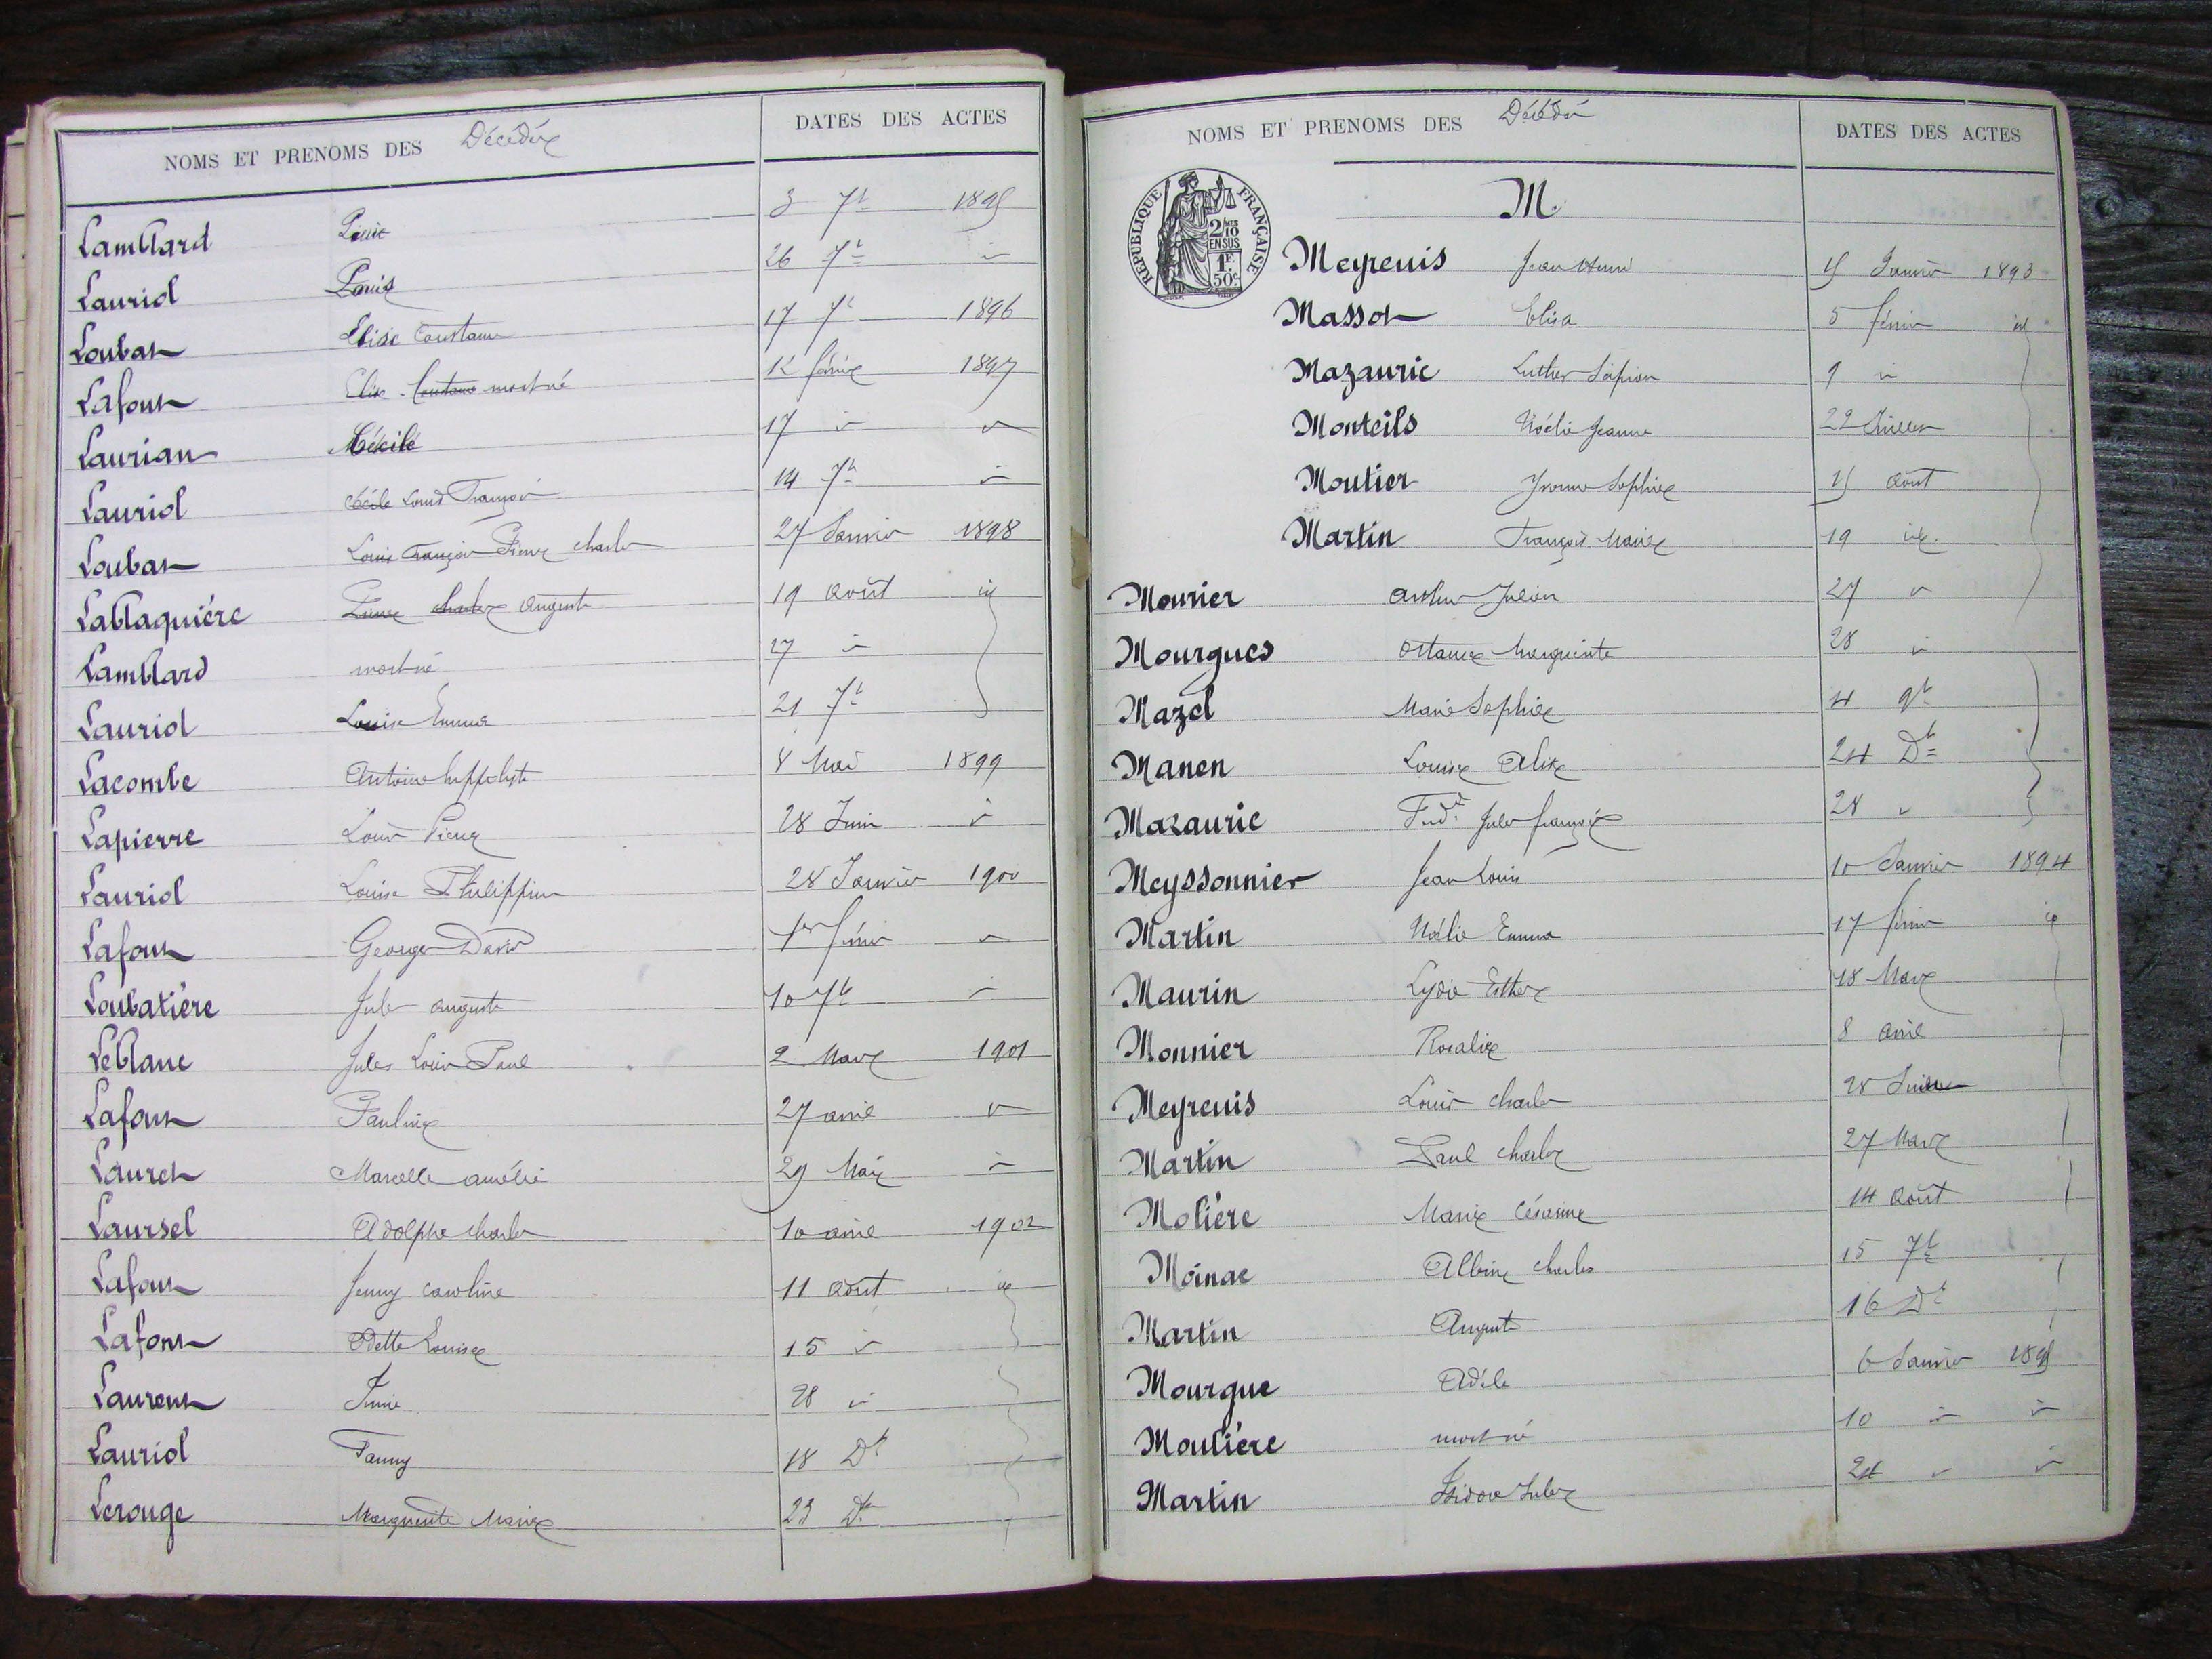 NOMS ET PRENOMS DES Décédés DATES DES ACTES
Lamblard Louis 3 7b 1895
Lauriol Louis 26 7b id
Loubat Elisée Constance 17 7b 1896
Lafont Elise Constance mort né 12 février 1897
Laurian Cécile 17 id id
Lauriol Cécile Louis François 14 7b id
Loubat Louis François Pierre Charles 27 Janvier 1898
Lablaquière Pierre Charles Auguste 19 Août id
Lamblard mort né 27 id
Lauriol Louise Emma 21 7b
Lacombe Antoine hippolyte 8 Mai 1899
Lapierre Louis Pierre 28 Juin id
Lauriol Louise Philippine 28 Janvier 1900
Lafont Georges David 1er février id
Loubatière Jules auguste 10 7b id
Leblanc Jules Louis Paul 2 Mars 1901
Lafont Pauline 27 avril id
Lauret Marcelle amélie 29 Mai id
Laursel Adolphe Charles 10 avril 1902
Lafont Jenny caroline 11 août id
Lafont Odette Louise 15 id
Laurent 28 id
Lauriol Fanny 18 Db
Lerouge Marguerite Marie 23 Db
NOMS ET PRENOMS DES Décédés DATES DES ACTES
RÉPUBLIQUE FRANÇAISE
2/10 EN SUS
1F 50c
M.
Meyrenis Jean Henri 15 Janvier 1893
Massot Elisa 5 février id
Mazauric Luther Scipion 9 id
Monteils Noélie Jeanne 22 Juillet
Moutier Yvonne Sophie 15 août
Martin François Marie 19 id
Mourier Arthur Julien 27 id
Mourgues Octavie Marguerite 28 id
Mazel Marie Sophie 4 9b
Manen Louise Alix 24 Db
Mazauric Fréd. Jules françois 28 id
Meyssonnier Jean Louis 10 Janvier 1894
Martin Noélie Emma 17 février id
Maurin Lydie Esther 18 Mars
Monnier Rosalie 8 avril
Meyrenis Louis Charles 28 Juillet
Martin Paul Charles 27 Mars
Molière Marie Césarine 14 août
Moinac Albin Charles 15 7b
Martin Auguste 16 Db
Mourgue Adèle 6 Janvier 1895
Moulière mort né 10 id id
Martin Isidore Jules 24 id id